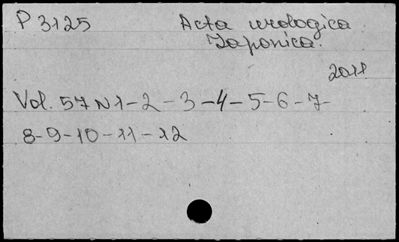 P 3125 Acta urologica
Japonica.
2011
Vol. 57 N 1-2-3-4-5-6-7-
8-9-10-11-12